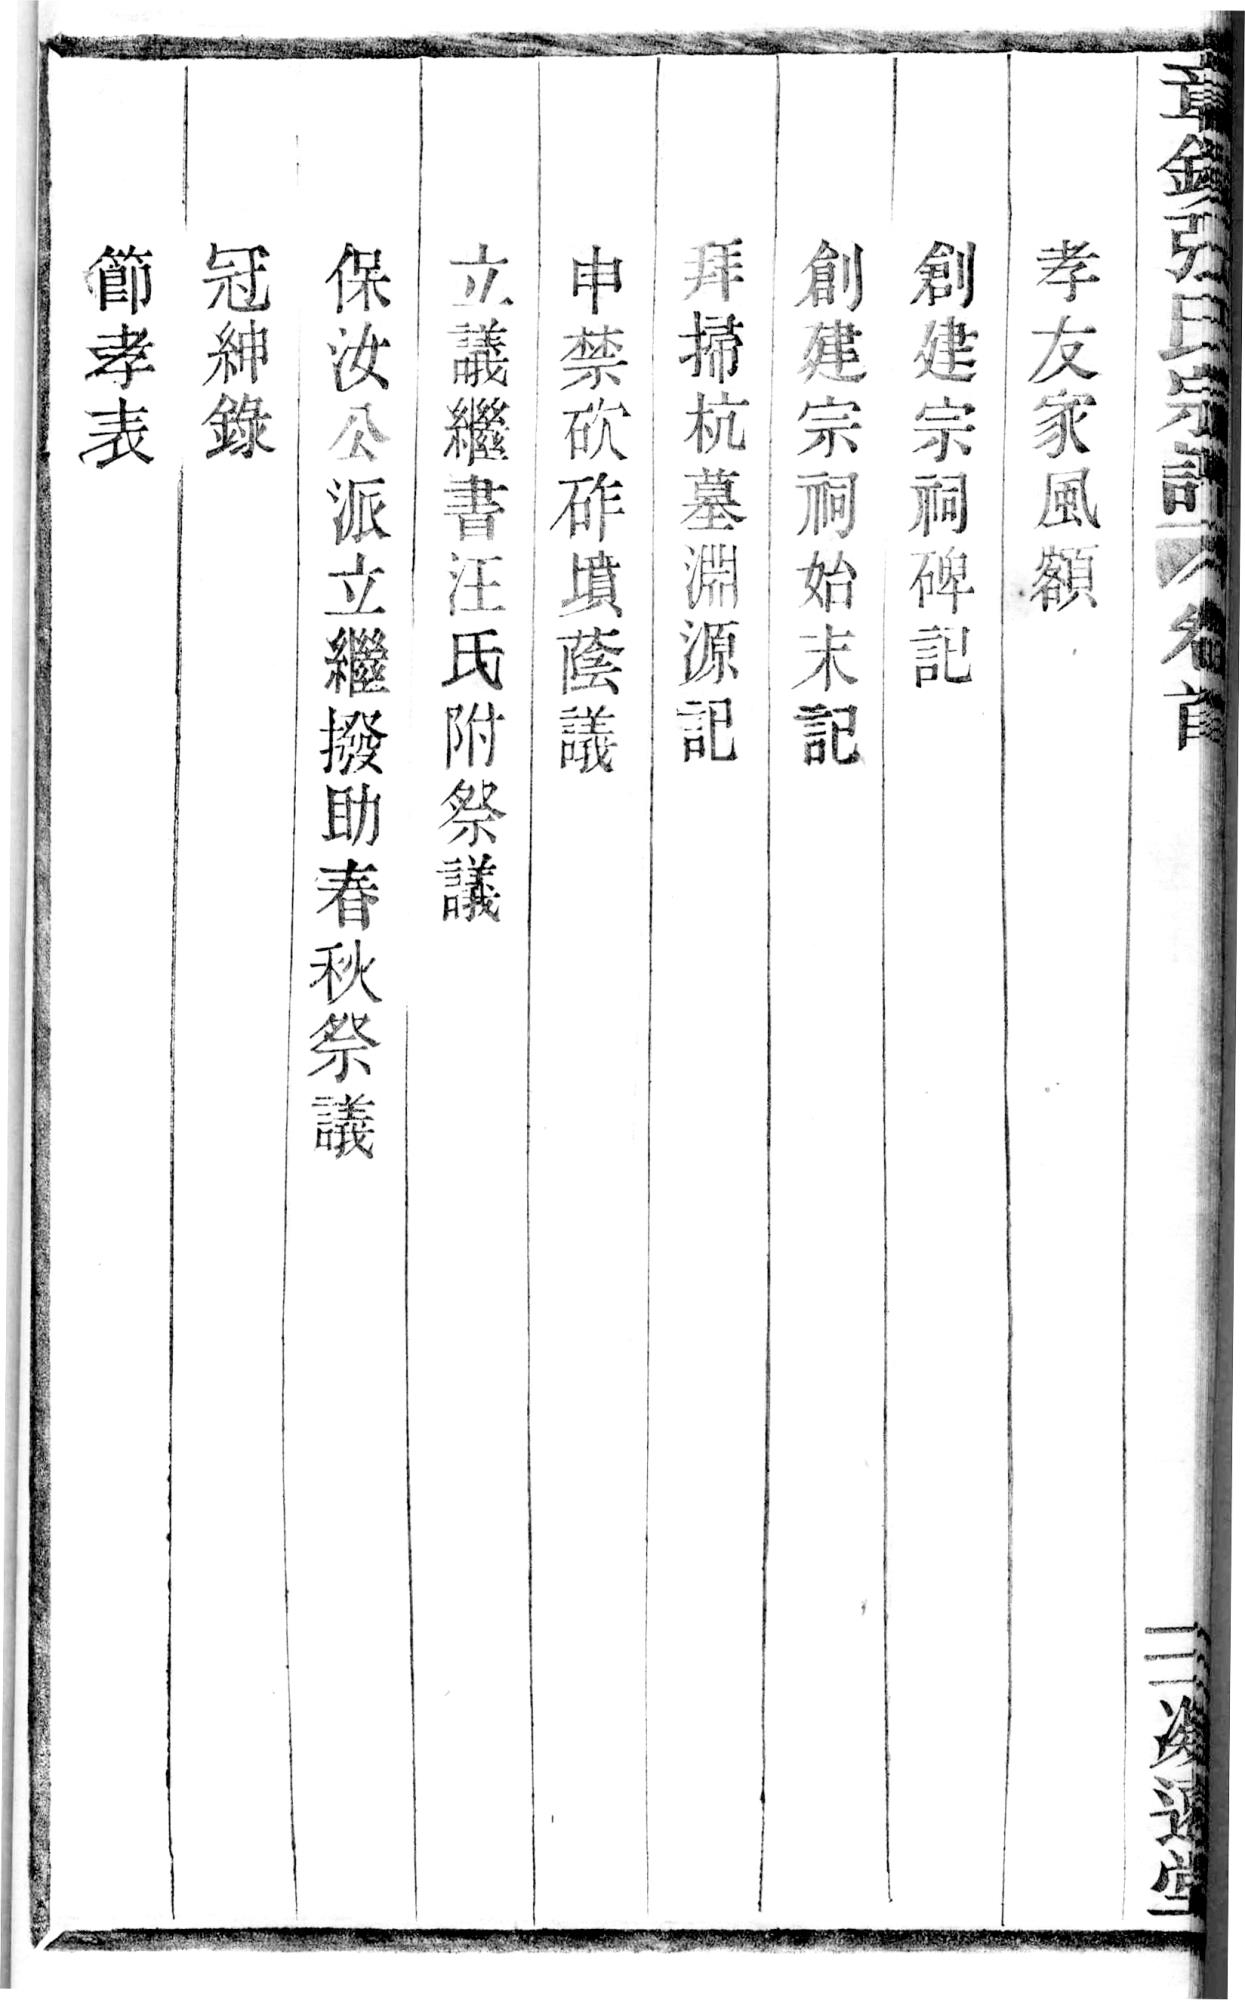 孝友家風額
創建宗祠碑記
創建宗祠始末記
拜掃杭墓淵源記
申禁砍砟墳蔭議
立議繼書汪氏附祭議
保汝公派立繼撥助春秋祭議
冠紳錄
節孝表
張氏宗譜
卷首
三
遠堂